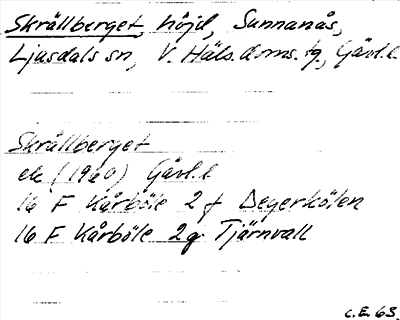 Skrållberget, höjd, Sunnanås,
Ljusdals sn, V. Häls. doms. tg., Gävl. l.
Skrållberget
ek (1960) Gävl. l
16 F Kårböle 2 f Degerkölen
16 F Kårböle 2 g Tjärnvall
C.E. 63.